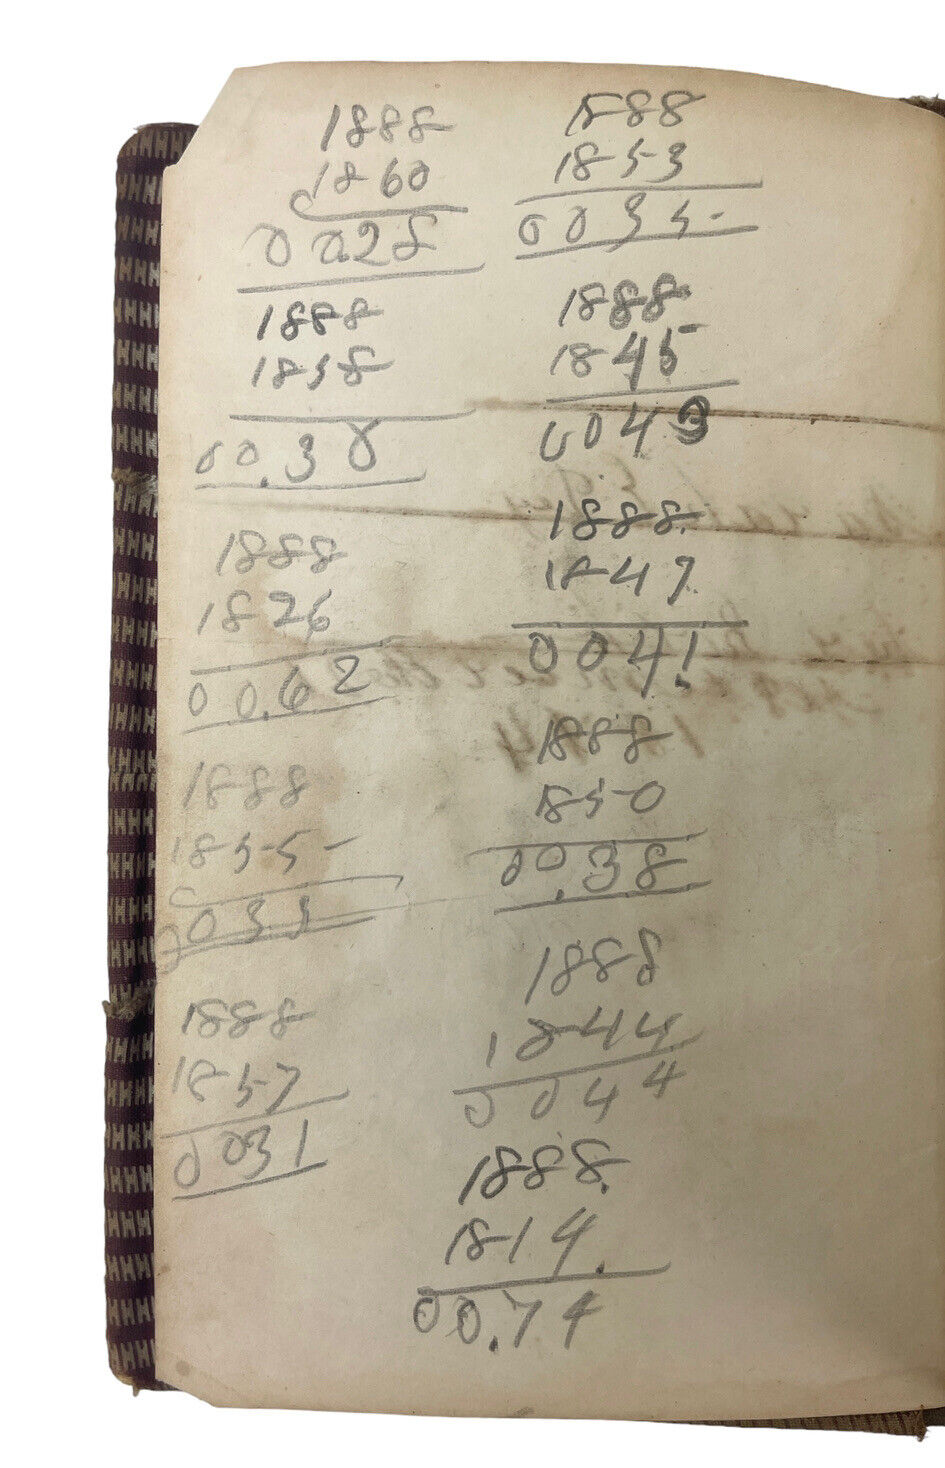 1888
1860
00.28
1888
1858
00.30
1888
1826
00.62
1888
1855
0033
1888
1857
0031
1888
1853
0035
1888
1845
0043
1888
1847
0041
1888
1850
00.38
1888
1844
0044
1888.
1814.
00.74